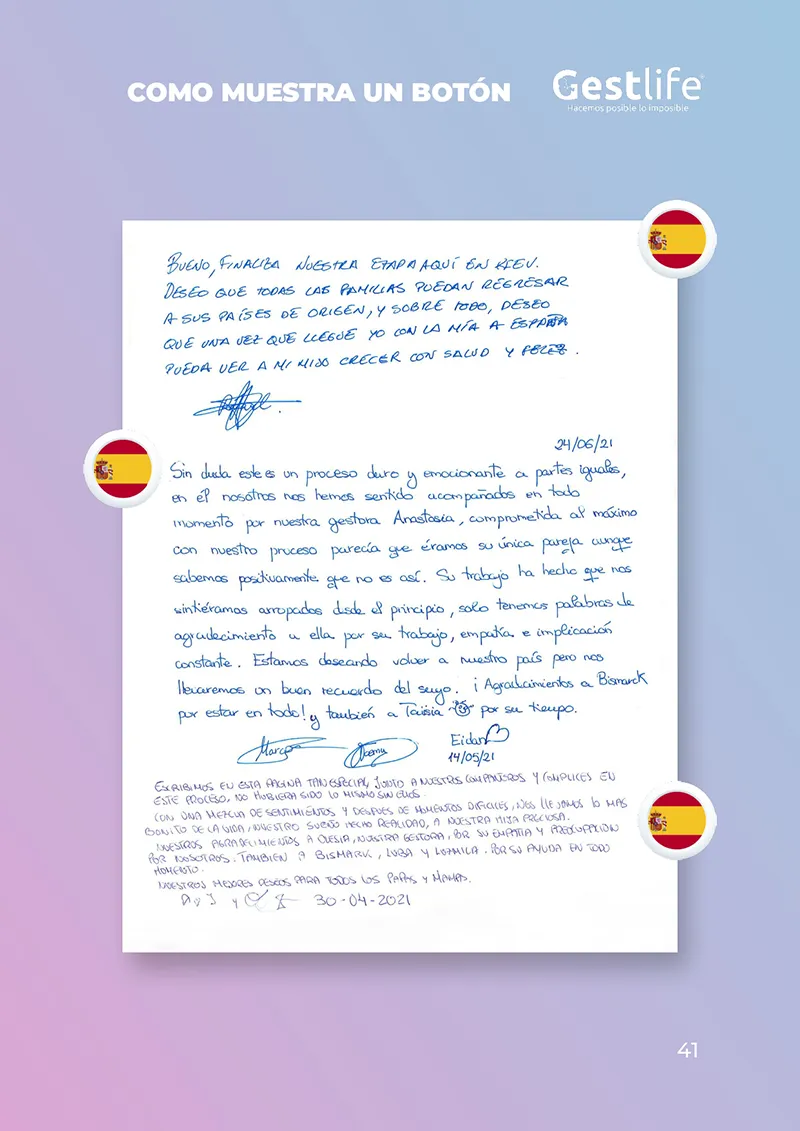 COMO MUESTRA UN BOTÓN
Gestlife
Hacemos posible lo imposible
BUENO, FINALIZA NUESTRA ETAPA AQUÍ EN KIEV.
DESEO QUE TODAS LAS FAMILIAS PUEDAN REGRESAR
A SUS PAÍSES DE ORIGEN, Y SOBRE TODO, DESEO
QUE UNA VEZ QUE LLEGUE YO CON LA MÍA A ESPAÑA
PUEDA VER A MI HIJO CRECER CON SALUD Y FELIZ.
24/06/21
Sin duda este es un proceso duro y emocionante a partes iguales,
en él nosotros nos hemos sentido acompañados en todo
momento por nuestra gestora Anastasia, comprometida al máximo
con nuestro proceso parecía que éramos su única pareja aunque
sabemos positivamente que no es así. Su trabajo ha hecho que nos
sintiéramos arropados desde el principio, solo tenemos palabras de
agradecimiento a ella por su trabajo, empatía e implicación
constante. Estamos deseando volver a nuestro país pero nos
llevaremos un buen recuerdo del suyo. ¡Agradecimientos a Bismarck
por estar en todo! y también a Taisia por su tiempo.
Marcos Noemy Eidan
14/05/21
ESCRIBIMOS EN ESTA PÁGINA TAN ESPECIAL, JUNTO A NUESTROS COMPAÑEROS Y COMPLICES EN
ESTE PROCESO, NO HUBIERA SIDO LO MISMO SIN ELLOS.
CON UNA MEZCLA DE SENTIMIENTOS Y DESPUES DE MOMENTOS DIFICILES, NOS LLEVAMOS LO MAS
BONITO DE LA VIDA, NUESTRO SUEÑO HECHO REALIDAD, A NUESTRA HIJA PRECIOSA.
NUESTROS AGRADECIMIENTOS A OLESIA, NUESTRA GESTORA, POR SU EMPATIA Y PREOCUPACION
POR NOSOTROS. TAMBIEN A BISMARK, LUBA Y LUDMILA. POR SU AYUDA EN TODO
MOMENTO.
NUESTROS MEJORES DESEOS PARA TODOS LOS PAPAS Y MAMAS.
30-04-2021
41